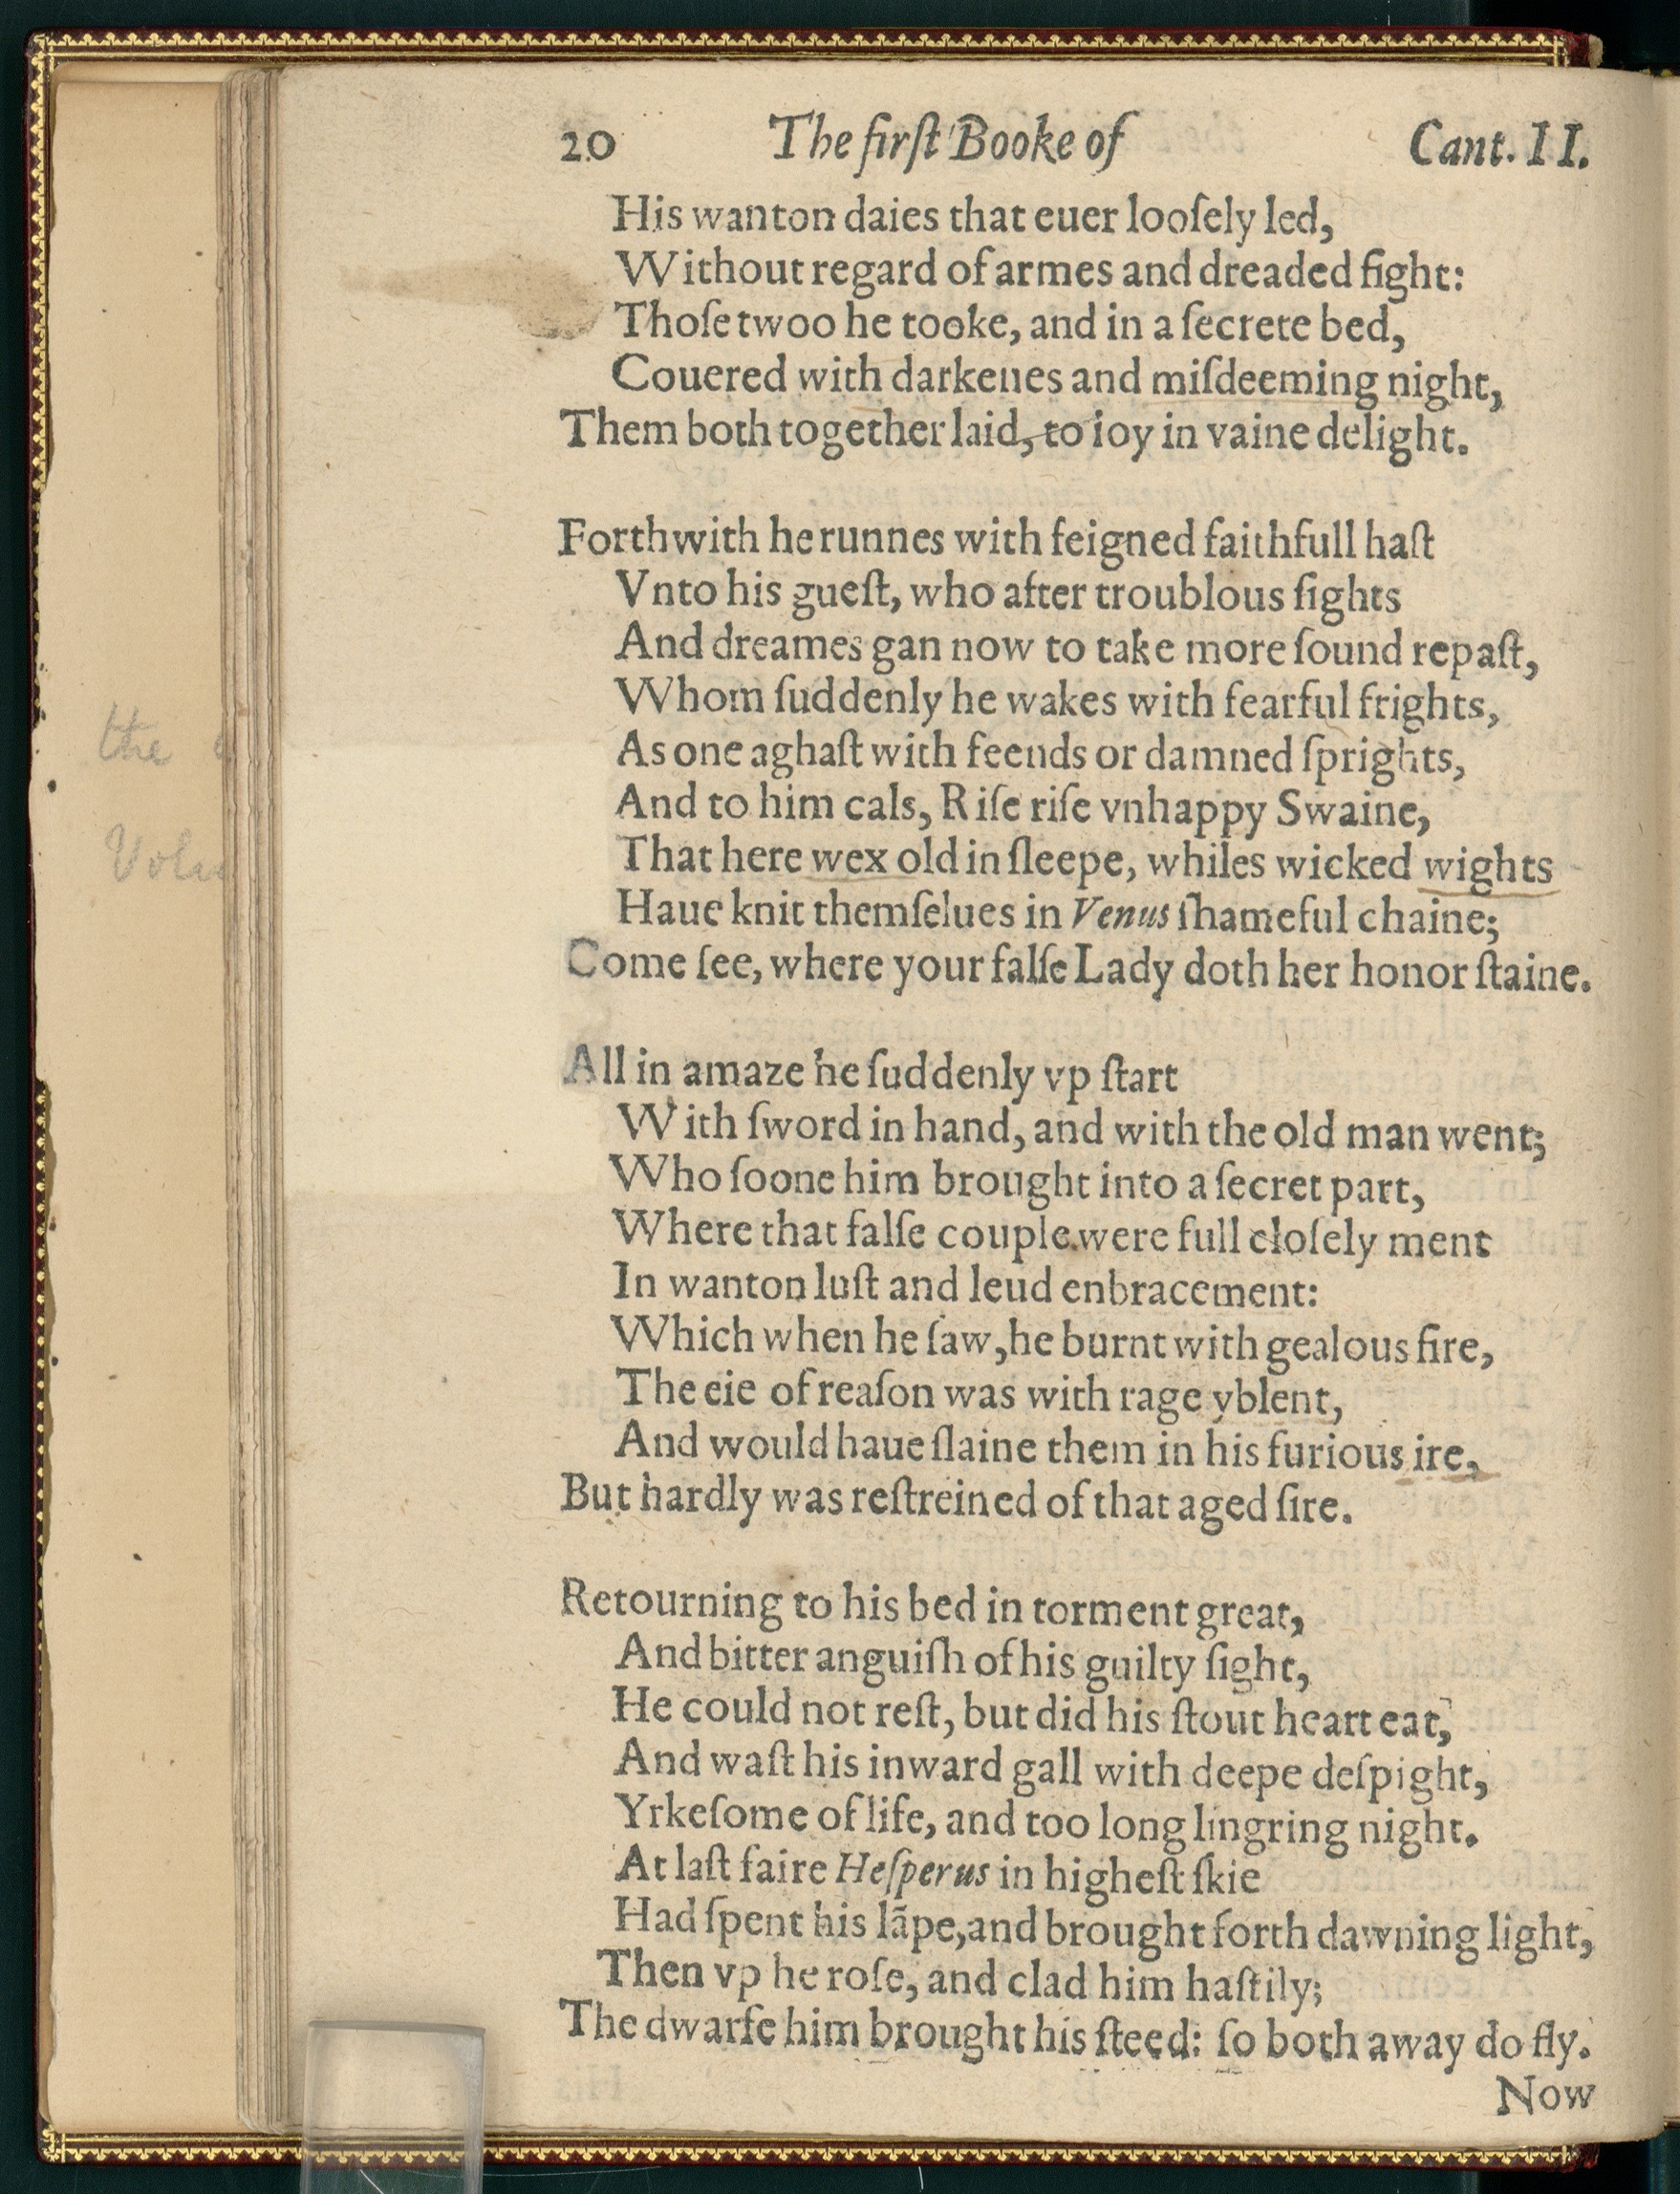 20 The firſt Booke of Cant. II.
His wanton daies that euer looſely led,
Without regard of armes and dreaded fight:
Thoſe twoo he tooke, and in a ſecrete bed,
Couered with darkenes and miſdeeming night,
Them both together laid, to ioy in vaine delight.
Forthwith he runnes with feigned faithfull haſt
Vnto his gueſt, who after troublous ſights
And dreames gan now to take more ſound repaſt,
Whom ſuddenly he wakes with fearful frights,
As one aghaſt with feends or damned ſprights,
And to him cals, Riſe riſe vnhappy Swaine,
That here wex old in ſleepe, whiles wicked wights
Haue knit themſelues in Venus ſhameful chaine;
Come ſee, where your falſe Lady doth her honor ſtaine.
All in amaze he ſuddenly vp ſtart
With ſword in hand, and with the old man went;
Who ſoone him brought into a ſecret part,
Where that falſe couple were full cloſely ment
In wanton luſt and leud enbracement:
Which when he ſaw, he burnt with gealous fire,
The eie of reaſon was with rage yblent,
And would haue ſlaine them in his furious ire,
But hardly was reſtreined of that aged ſire.
Retourning to his bed in torment great,
And bitter anguiſh of his guilty ſight,
He could not reſt, but did his ſtout heart eat,
And waſt his inward gall with deepe deſpight,
Yrkeſome of life, and too long lingring night.
At laſt faire Heſperus in higheſt ſkie
Had ſpent his lãpe, and brought forth dawning light,
Then vp he roſe, and clad him haſtily;
The dwarfe him brought his ſteed: ſo both away do fly.
Now
the